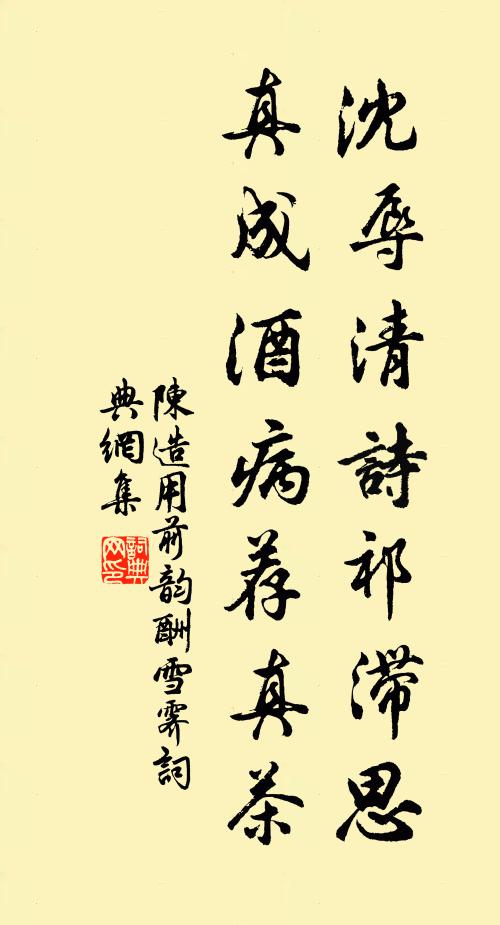 沈辱清詩祁滯思
真成酒病荐真茶
陳造用前韵酬雪霁詞
典網集
詞典网印